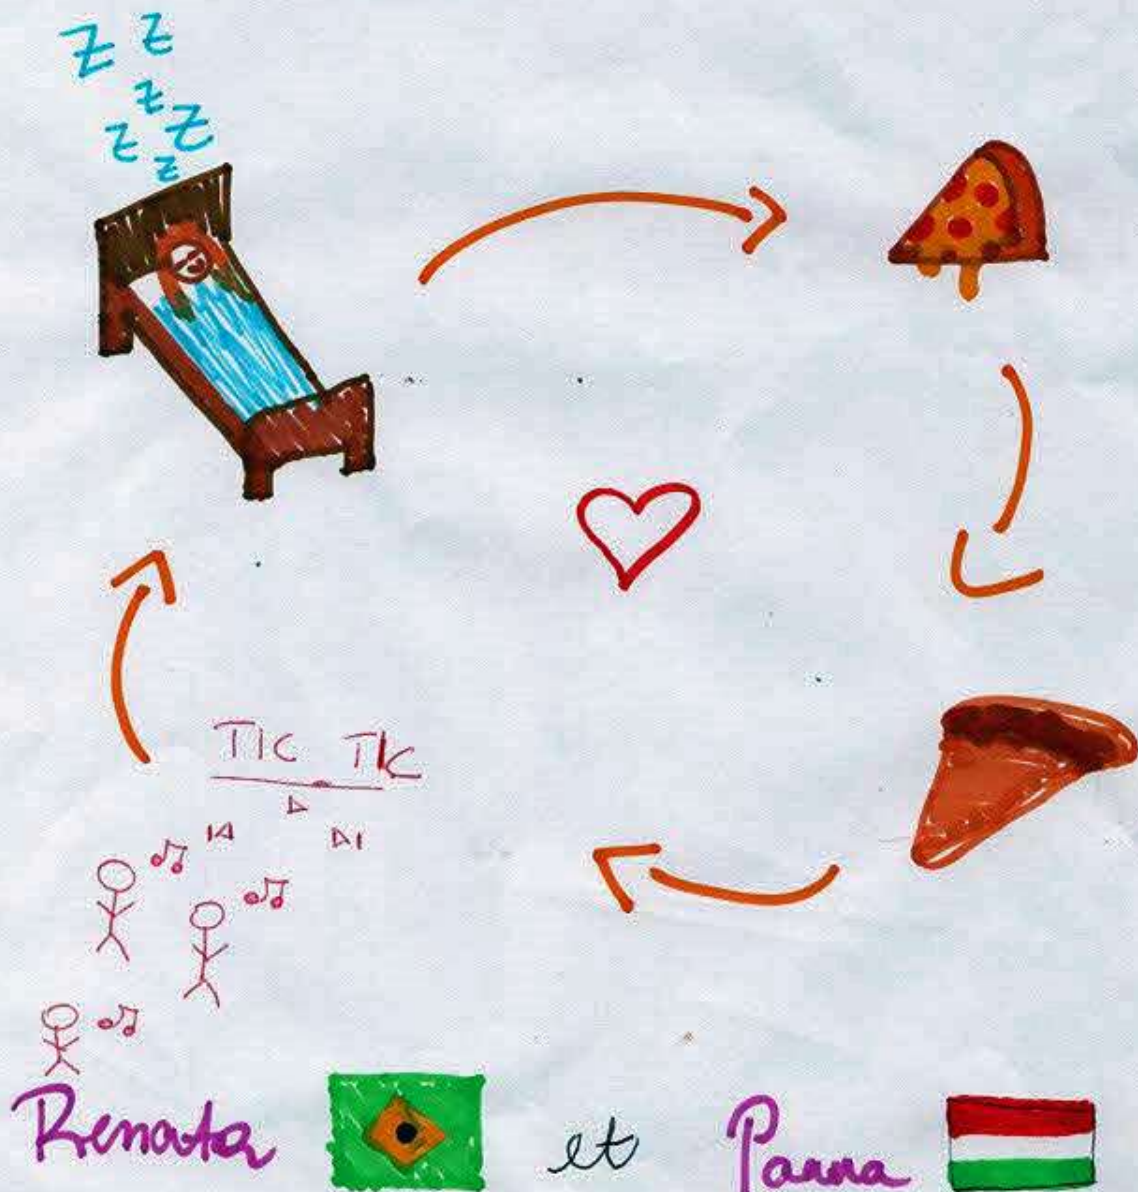 Z Z
Z
Z Z
Z
TIC TIC
Renata et Panna